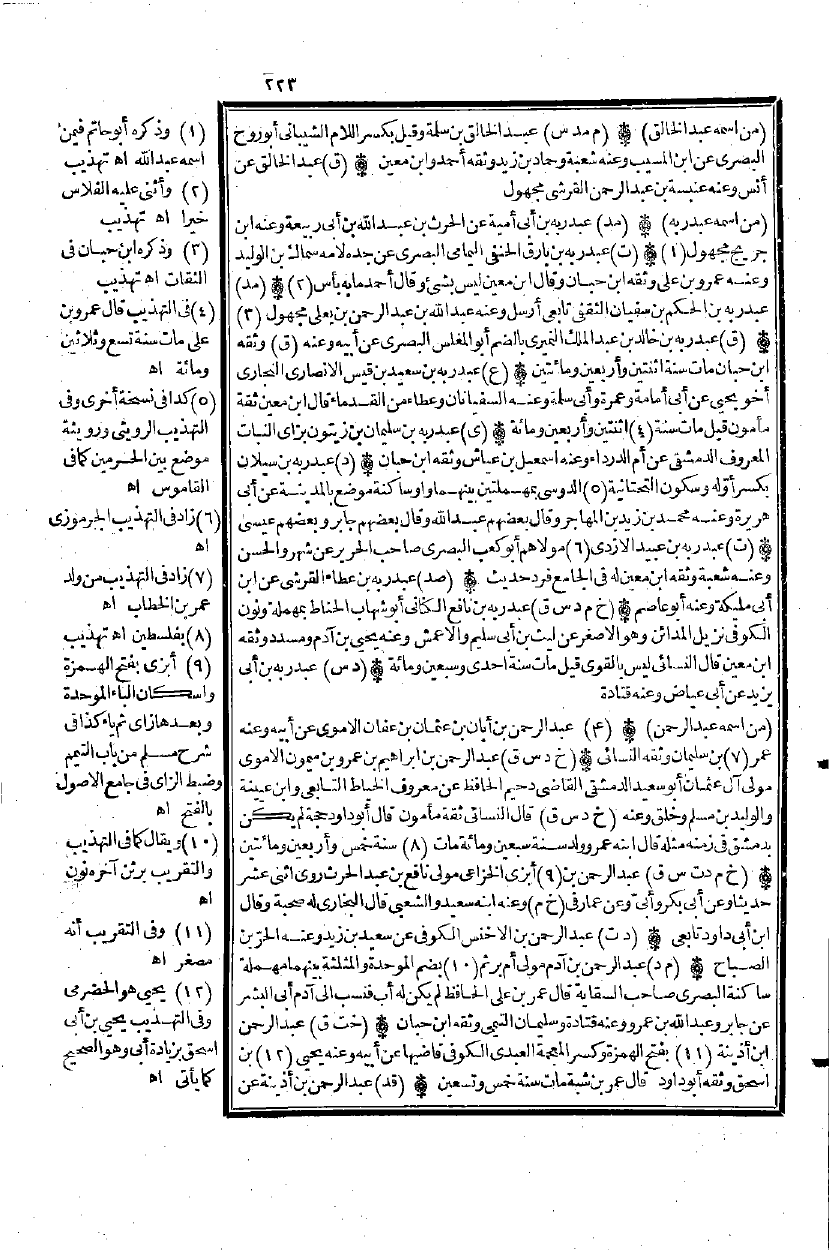 ٢٢٣
(من اسمه عبد الخالق) ❁ (م مد س) عبد الخالق بن سلمة وقيل بكسر اللام الشيبانى أبو روح
البصرى عن ابن المسيب وعنه شعبة وحماد بن زيد وثقه أحمد وابن معين ❁ (ق) عبد الخالق عن
أنس وعنه عنبسة بن عبد الرحمن القرشى مجهول
(من اسمه عبد ربه) ❁ (مد) عبد ربه بن أبى أمية عن الحرث بن عبد الله بن أبى ربيعة وعنه ابن
جريج مجهول (١) ❁ (ت) عبد ربه بن بارق الحنفى اليمامى البصرى عن جده لامه سماك بن الوليد
وعنه عمرو بن على وثقه ابن حبان وقال ابن معين ليس بشئ وقال أحمد ما به بأس (٢) ❁ (مد)
عبد ربه بن الحكم بن سفيان الثقفى تابعى أرسل وعنه عبد الله بن عبد الرحمن بن يعلى مجهول (٣)
❁ (ق) عبد ربه بن خالد بن عبد الملك النميرى بالضم أبو المغلس البصرى عن أبيه وعنه (ق) وثقه
ابن حبان مات سنة اثنتين وأربعين ومائتين ❁ (ع) عبد ربه بن سعيد بن قيس الانصارى النجارى
أخو يحيى عن أبى أمامة وعمرة وأبى سلمة وعنه السفيانان وعطاء من القدماء قال ابن معين ثقة
مأمون قيل مات سنة (٤) اثنتين وأربعين ومائة ❁ (ى) عبد ربه بن سليمان بن زيتون بزاى النبات
المعروف الدمشقى عن أم الدرداء وعنه اسمعيل بن عياش وثقه ابن حبان ❁ (د) عبد ربه بن سيلان
بكسر أوله وسكون التحتانية (٥) الدوسى بمهملتين بينهما واو ساكنة موضع بالمدينة عن أبى
هريرة وعنه محمد بن زيد بن المهاجر وقال بعضهم عبد الله وقال بعضهم جابر وبعضهم عيسى
❁ (ت) عبد ربه بن عبيد الازدى (٦) مولاهم أبو كعب البصرى صاحب الحرير عن شهر والحسن
وعنه شعبة وثقه ابن معين له فى الجامع فرد حديث ❁ (صد) عبد ربه بن عطاء القرشى عن ابن
أبى مليكة وعنه أبو عاصم ❁ (خ م د س ق) عبد ربه بن نافع الكنانى أبو شهاب الحناط بمهملة ونون
الكوفى نزيل المدائن وهو الاصغر عن ليث بن أبى سليم والاعمش وعنه يحيى بن آدم ومسدد وثقه
ابن معين قال النسائى ليس بالقوى قيل مات سنة احدى وسبعين ومائة ❁ (د س) عبد ربه بن أبى
يزيد عن أبى عياض وعنه قتادة
(من اسمه عبد الرحمن) ❁ (٤) عبد الرحمن بن أبان بن عثمان بن عفان الاموى عن أبيه وعنه
عمر (٧) بن سليمان وثقه النسائى ❁ (خ د س ق) عبد الرحمن بن ابراهيم بن عمرو بن ميمون الاموى
مولى آل عثمان أبو سعيد الدمشقى القاضى دحيم الحافظ عن معروف الخياط التابعى وابن عيينة
والوليد بن مسلم وخلق وعنه (خ د س ق) قال النسائى ثقة مأمون قال أبو داود حجة لم يكن
بدمشق فى زمنه مثله قال ابنه عمرو ولد سنة سبعين ومائة مات (٨) سنة خمس وأربعين ومائتين
❁ (خ م د ت س ق) عبد الرحمن بن (٩) أبزى الخزاعى مولى نافع بن عبد الحرث روى اثنى عشر
حديثا وعن أبى بكر وأبىّ وعن عمار فى (خ م) وعنه ابنه سعيد والشعبى قال البخارى له صحبة وقال
ابن أبى داود تابعى ❁ (د ت) عبد الرحمن بن الاخنس الكوفى عن سعيد بن زيد وعنه الحر بن
الصباح ❁ (م د) عبد الرحمن بن آدم مولى أم برثم (١٠) بضم الموحدة والمثلثة بينهما مهملة
ساكنة البصرى صاحب السقاية قال عمر بن على الحافظ لم يكن له أب فنسب الى آدم أبى البشر
عن جابر وعبد الله بن عمرو وعنه قتادة وسليمان التيمى وثقه ابن حبان ❁ (خت ق) عبد الرحمن
ابن أذينة (١١) بفتح الهمزة وكسر المعجمة العبدى الكوفى قاضيها عن أبيه وعنه يحيى (١٢) بن
اسحق وثقه أبو داود قال عمر بن شبة مات سنة خمس وتسعين ❁ (قد) عبد الرحمن بن أذينة عن
(١) وذكره أبو حاتم فيمن
اسمه عبد الله اه تهذيب
(٢) وأثنى عليه الفلاس
خيرا اه تهذيب
(٣) وذكره ابن حبان فى
الثقات اه تهذيب
(٤) فى التهذيب قال عمرو بن
على مات سنة تسع وثلاثين
ومائة اه
(٥) كذا فى نسخة أخرى وفى
التهذيب الرويثى ورويثة
موضع بين الحرمين كما فى
القاموس اه
(٦) زاد فى التهذيب الجرموزى
اه
(٧) زاد فى التهذيب من ولد
عمر بن الخطاب اه
(٨) بفلسطين اه تهذيب
(٩) أبزى بفتح الهمزة
واسكان الباء الموحدة
وبعدها زاى ثم ياء كذا فى
شرح مسلم من باب التيمم
وضبط الزاى فى جامع الاصول
بالفتح اه
(١٠) ويقال كما فى التهذيب
والتقريب برثن آخره نون
اه
(١١) وفى التقريب أنه
مصغر اه
(١٢) يحيى هو الحضرمى
وفى التهذيب يحيى بن أبى
اسحق بزيادة أبى وهو الصحيح
كما يأتى اه